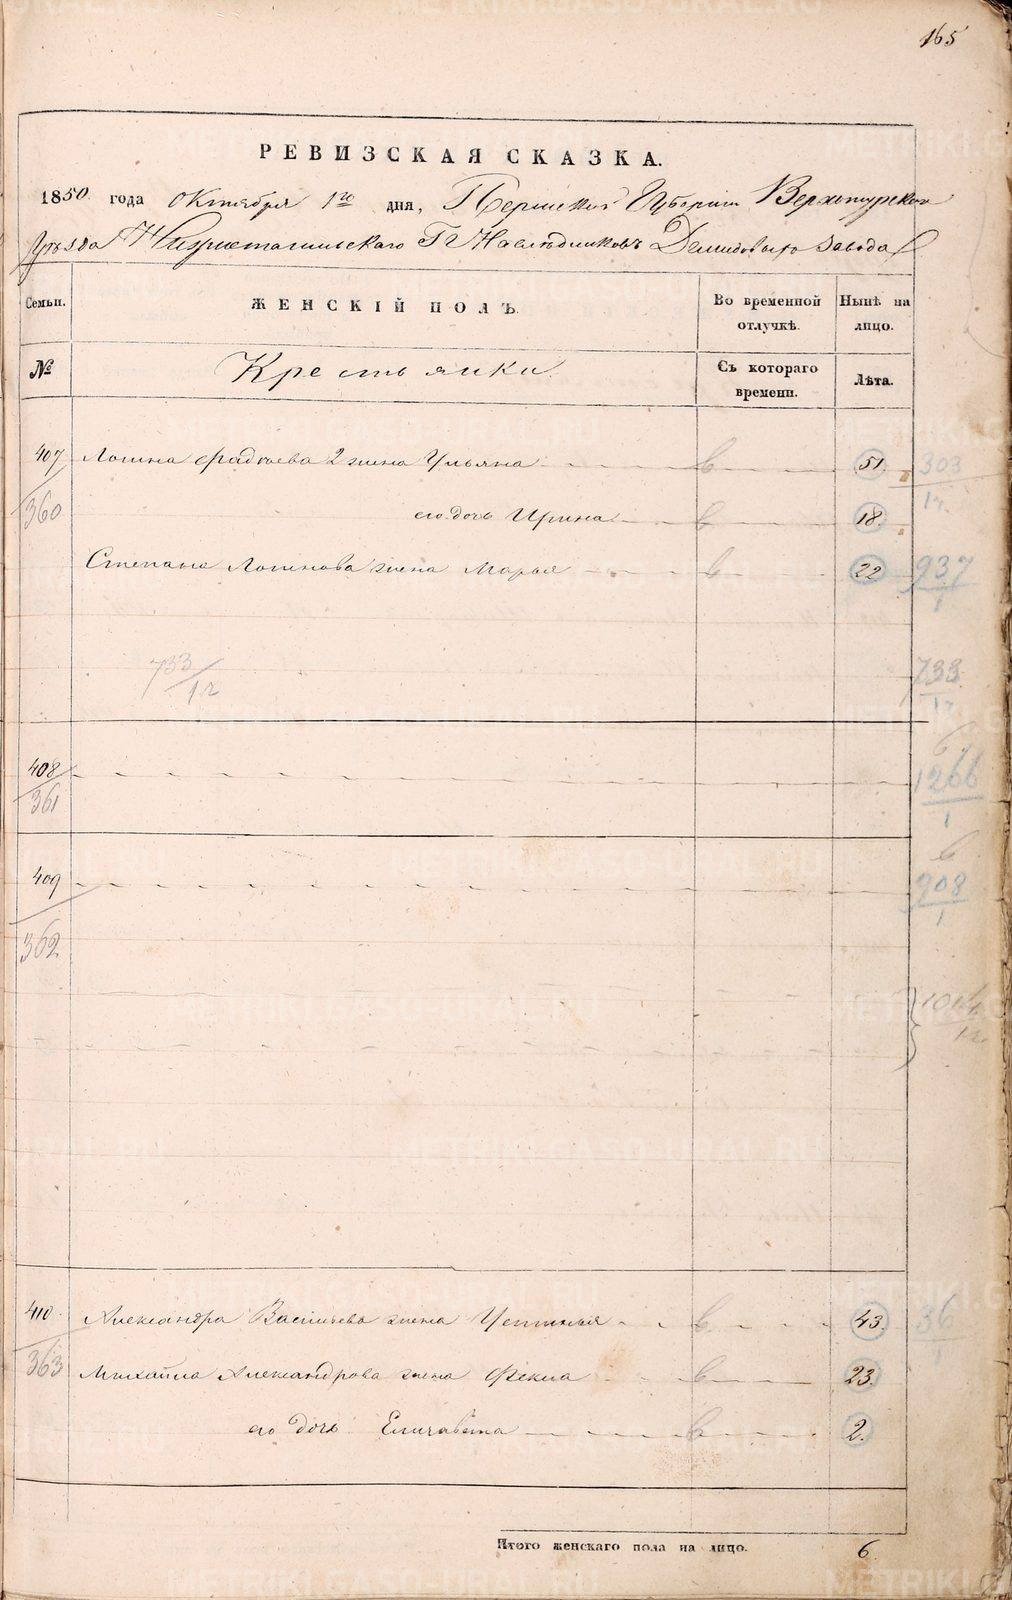 165
РЕВИЗСКАЯ СКАЗКА.
1850 года Октября 1го дня, Пермской Губернии Верхотурского
Уѣзда Нижнетагильскаго Гг Наслѣдниковъ Демидовыхъ завода
Семьи. ЖЕНСКІЙ ПОЛЪ. Во временной отлучкѣ. Нынѣ на лицо.
№ Крестьянки. Съ котораго времени. Лѣта.
407 Логина Фадѣева 2 жена Ульяна 51. 303
360 1г.
его дочь Ирина 18.
Степана Логинова жена Марья 22 937
1
733 733
1г 1г
408 1266
361 1
409 908
362 1
1014
1г.
410 Александра Васильева жена Устинья 43. 36
1
363 Михайла Александрова жена Фекла 23.
его дочь Елизавета 2.
Итого женскаго пола на лицо. 6.
METRIKI.GASO-URAL.RU